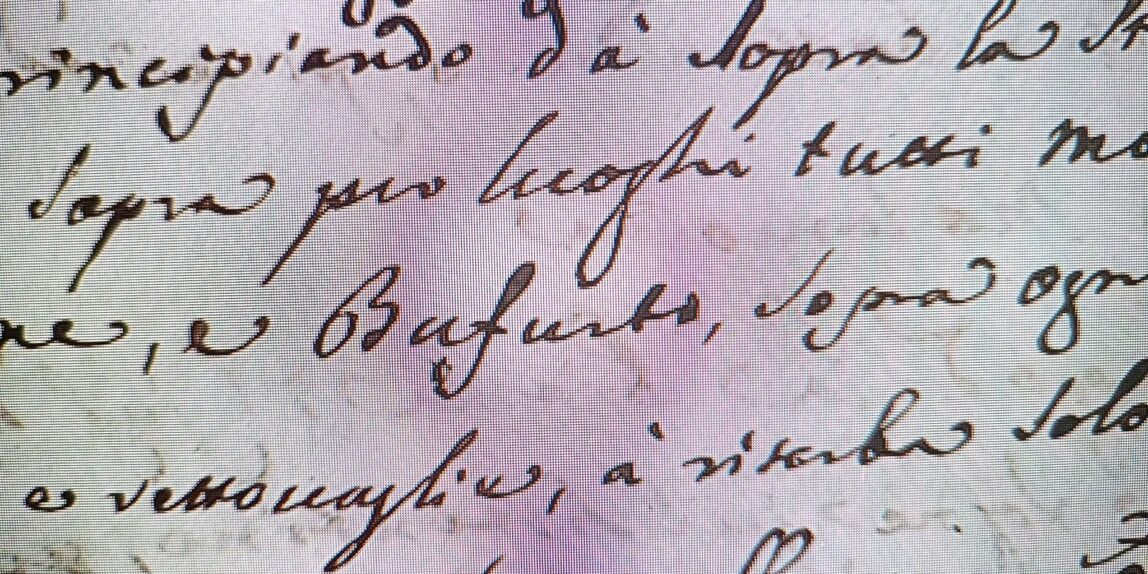 rincipiando da' sopra la St
Sopra per luoghi tutti mo
ne, e Bufurto, Sopra ogn
e vettovaglie, à riserba Solo